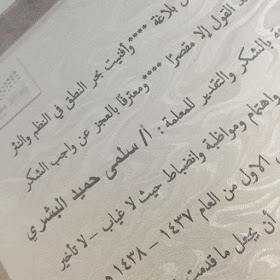 بلاغة ****وأفنيت بحر النطق في النظم والنثر
القول إلا مقصرًا ****ومعترفًا بالعجز عن واجب الشكر
الشكر والتقدير للمعلمة : أ/ سلمى حميد البشري
واهتمام ومواظبة وانضباط حيث لا غياب – لا تأخير
الاول من العام ١٤٣٧ – ١٤٣٨
أن يجعل ما قدمت